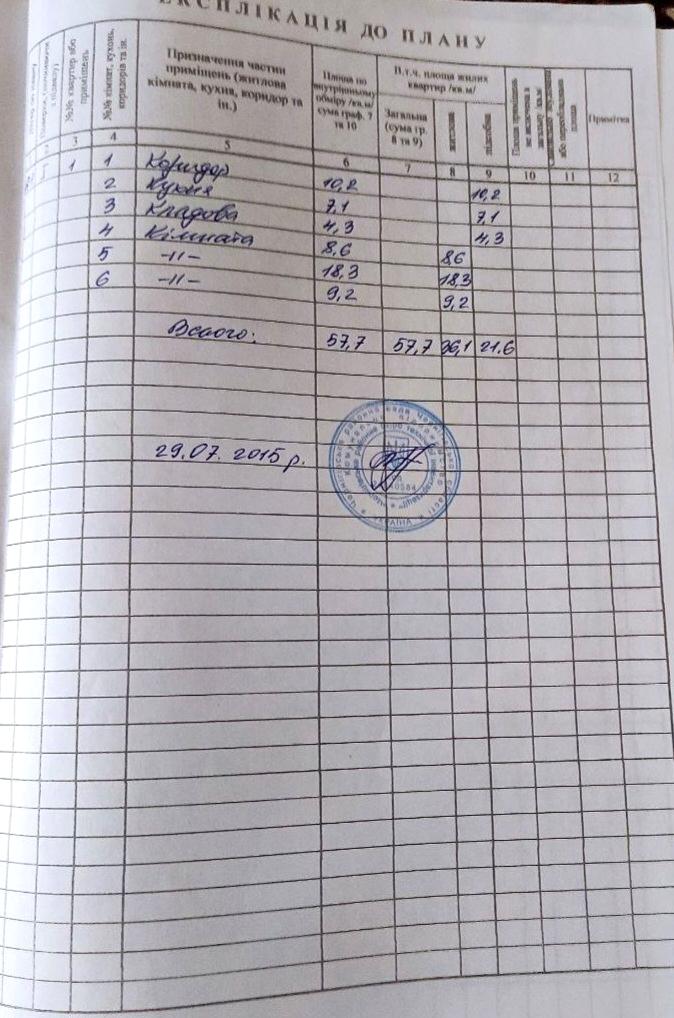 ЕКСПЛІКАЦІЯ ДО ПЛАНУ
№№ квартир або приміщень
№№ кімнат, кухонь, коридорів та ін.
Призначення частин приміщень (житлова кімната, кухня, коридор та ін.)
Площа по внутрішньому обміру /кв.м/ сума граф. 7 та 10
В.т.ч. площа жилих квартир /кв.м/
Загальна (сума гр. 8 та 9)
житлова
підсобна
Площа приміщень не включена в загальну /кв.м/
або переобладнана площа
Примітка
2 3 4 5 6 7 8 9 10 11 12
1 1 Коридор 10,2 10,2
2 Кухня 7,1 7,1
3 Кладова 4,3 4,3
4 Кімната 8,6 8,6
5 -//- 18,3 18,3
6 -//- 9,2 9,2
Всього: 57,7 57,7 36,1 21.6
29.07. 2015 р.
УКРАЇНА